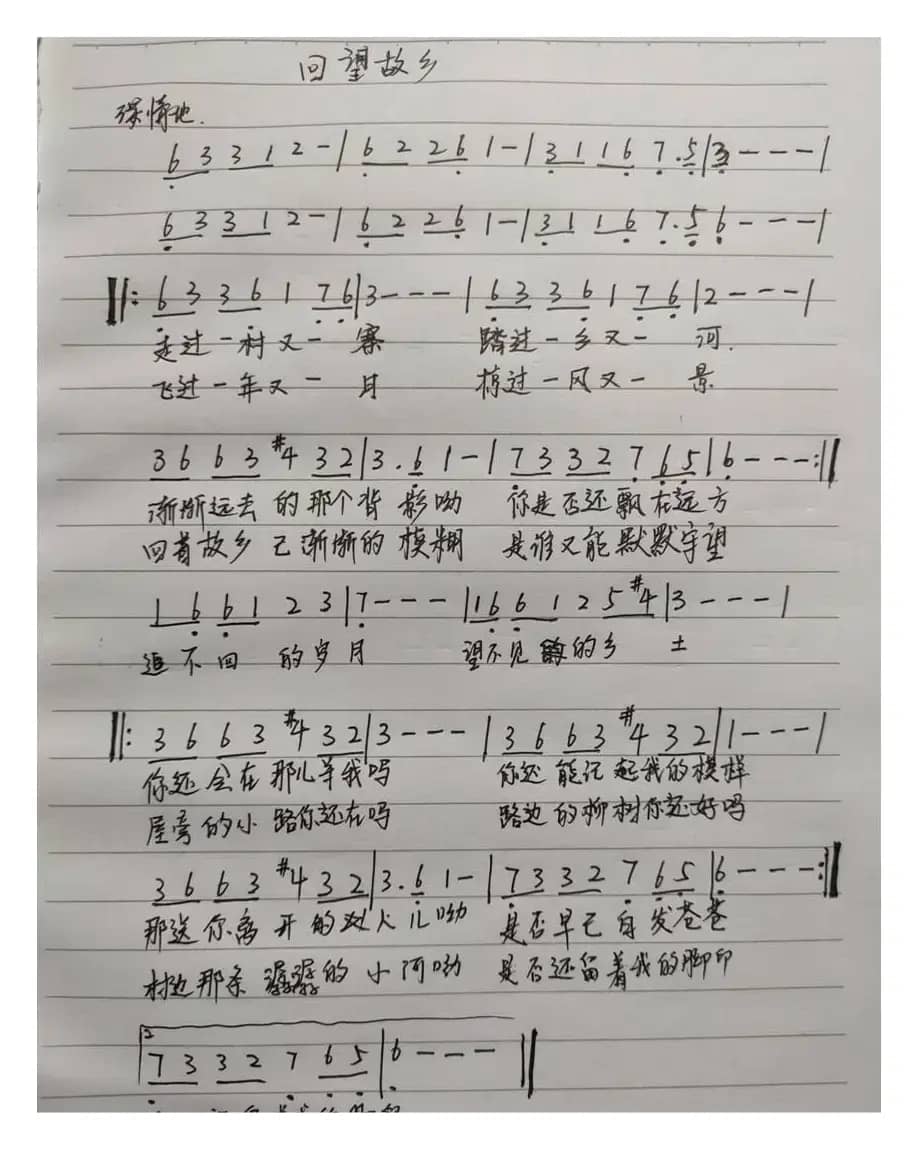 回望故乡
深情地.
6 3 3 1 2 - | 6 2 2 6 1 - | 3 1 1 6 7 . 5 | 3 - - - |
6 3 3 1 2 - | 6 2 2 6 1 - | 3 1 1 6 7 . 5 6 - - - |
‖: 6 3 3 6 1 7 6 | 3 - - - | 6 3 3 6 1 7 6 | 2 - - - |
走过一村又一寨 踏过一乡又一河.
飞过一年又一月 掠过一风又一景
3 6 6 3 #4 3 2 | 3 . 6 1 - | 7 3 3 2 7 6 5 | 6 - - - :‖
渐渐远去的那个背影呦 你是否还飘在远方
回首故乡已渐渐的模糊 是谁又能默默守望
1 6 6 1 2 3 | 7 - - - | 1 6 6 1 2 5 #4 | 3 - - - |
追不回的岁月 望不见的乡土
‖: 3 6 6 3 #4 3 2 | 3 - - - | 3 6 6 3 #4 3 2 | 1 - - - |
你还会在那儿等我吗 你还能记起我的模样
屋旁的小路你还在吗 路边的柳树你还好吗
3 6 6 3 #4 3 2 | 3 . 6 1 - | 7 3 3 2 7 6 5 | 6 - - - :‖
那送你离开的人儿呦 是否早已白发苍苍
村边那条潺潺的小河呦 是否还留着我的脚印
2 7 3 3 2 7 6 5 | 6 - - - ‖